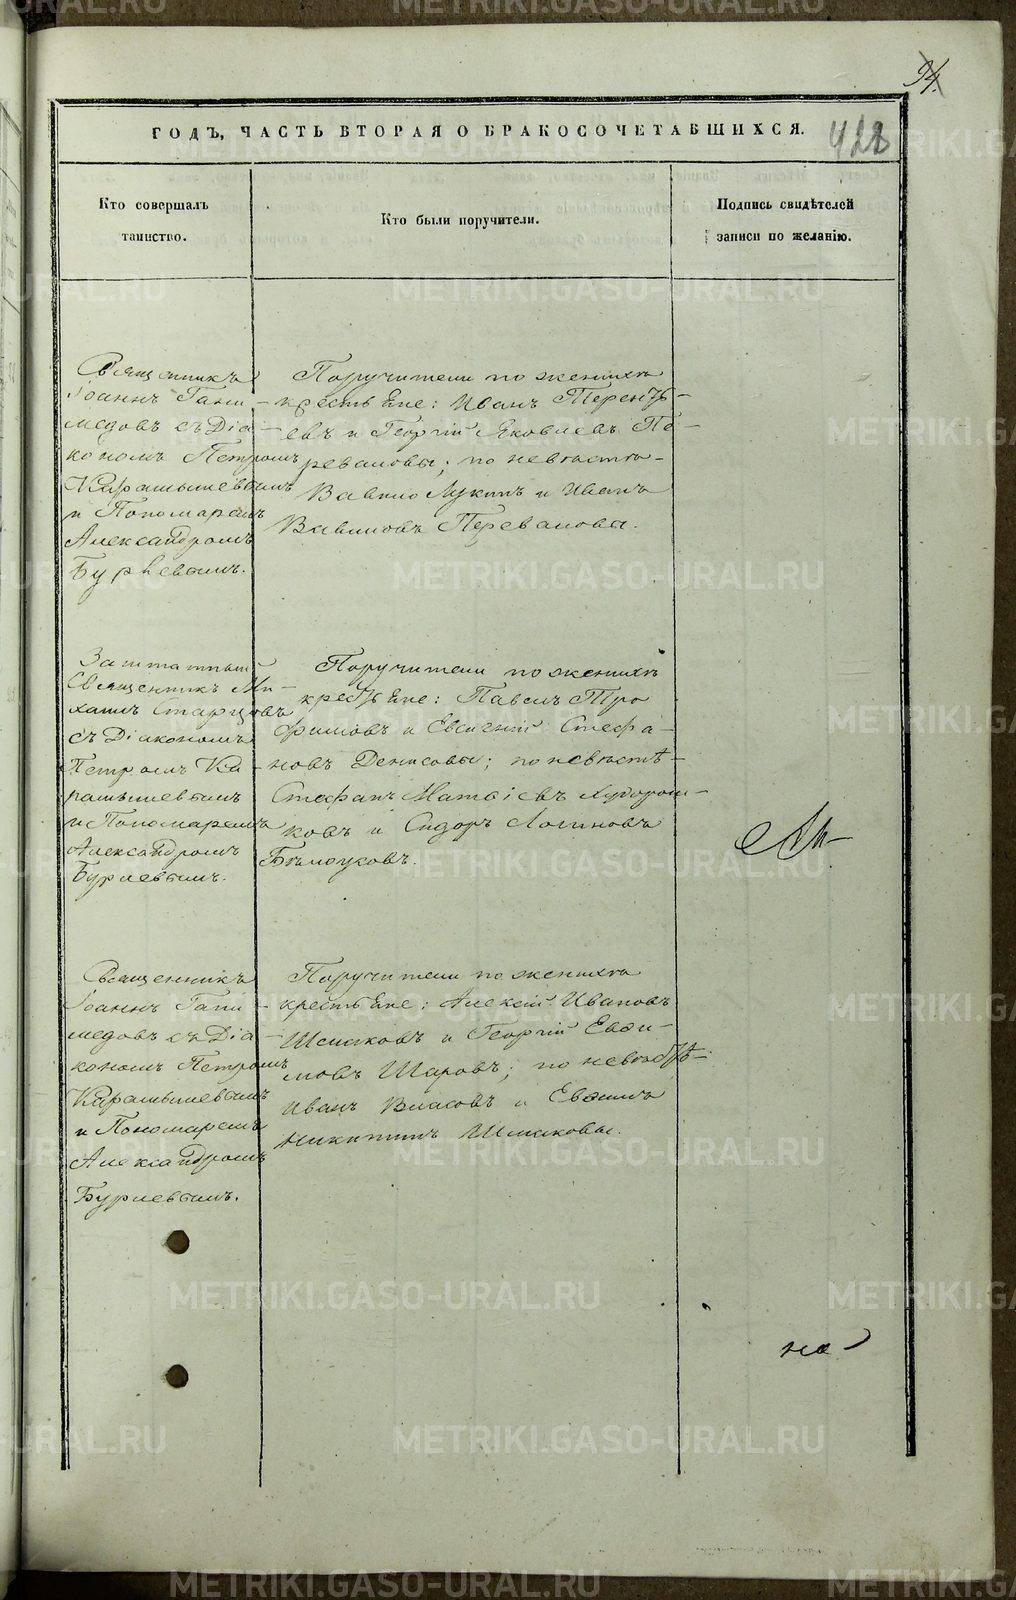 94.
ГОДЪ, ЧАСТЬ ВТОРАЯ О БРАКОСОЧЕТАВШИХСЯ.
428
Кто совершалъ
таинство.
Кто были поручители.
Подпись свидѣтелей
записи по желанію.
Священникъ
Іоаннъ Гани-
медовъ съ Діа-
кономъ Петромъ
Карамышевымъ
и Пономаремъ
Александромъ
Бурневымъ.
Поручители по женихѣ
крестьяне: Иванъ Терентъ-
евъ и Георгій Яковлевъ Пе-
реваловы; по невѣстѣ-
Вавило Лукинъ и Иванъ
Вавиловъ Переваловы.
Заштатный
Священникъ Ми-
хаилъ Старцовъ
съ Діакономъ
Петромъ Ка-
рамышевымъ
и Пономаремъ
Александромъ
Бурневымъ.
Поручители по женихѣ
крестьяне: Павелъ Тро
фимовъ и Евгеній Стефа-
новъ Денисовы; по невѣстѣ-
Стефанъ Матвіевъ
ковъ и Сидоръ Логиновъ
Бѣлоусовъ.
Священникъ
Іоаннъ Гани-
медовъ съ Діа-
кономъ Петромъ
Карамышевымъ
и Пономаремъ
Александромъ
Бурневымъ.
Поручители по женихѣ
крестьяне: Алексій Ивановъ
Шмаковъ и Георгій Евѳи-
мовъ Шаровъ; по невѣстѣ-
Иванъ Власовъ и Евѳимъ
Никитинъ Шмаковы.
METRIKI.GASO-URAL.RU